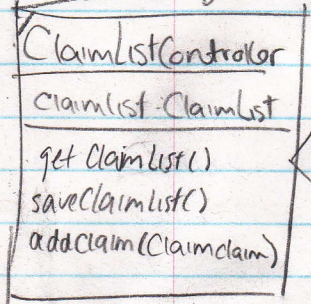 ClaimListController
claimlist:ClaimList
getClaimList()
saveClaimList()
addClaim(Claimclaim)